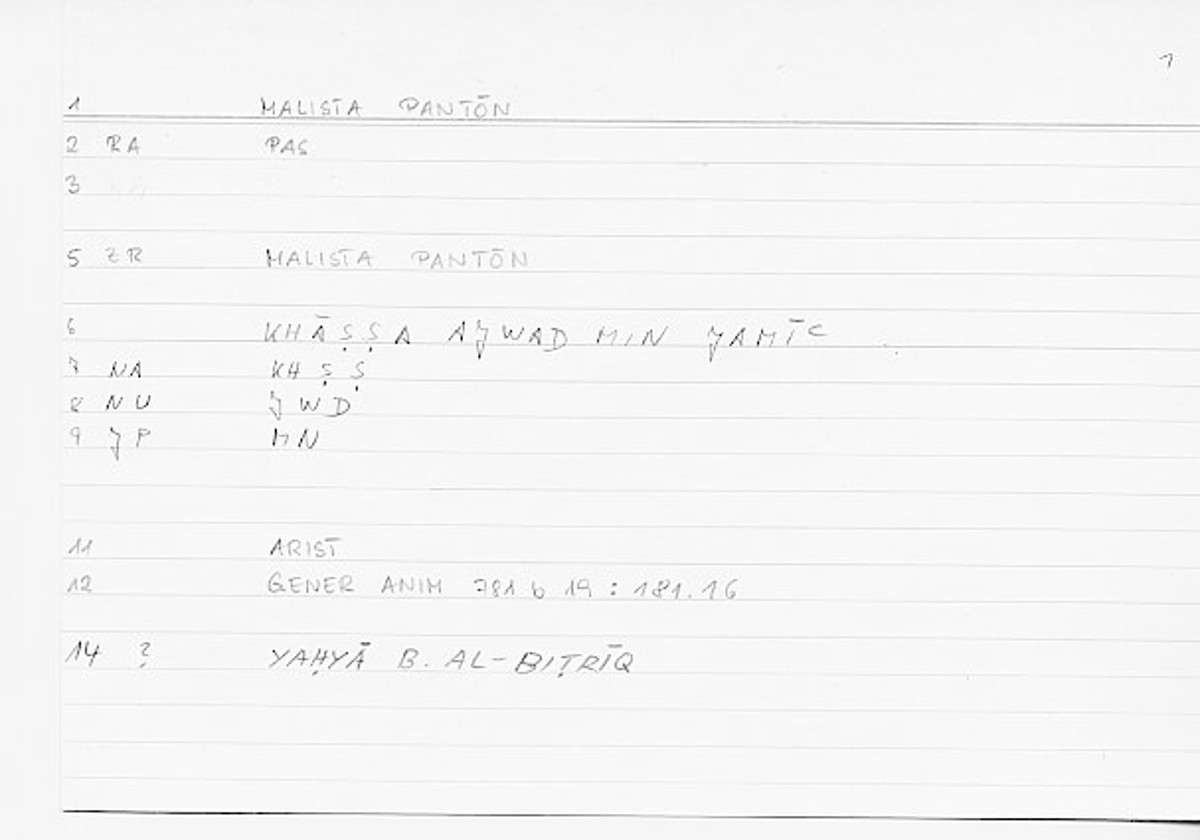 1
1 MALISTA PANTŌN
2 RA PAS
3
5 ZR MALISTA PANTŌN
6 KHĀṢṢA AJWAD MIN JAMĪC
7 NA KH Ṣ Ṣ
8 NU J W D
9 JP MN
11 ARIST
12 GENER ANIM 781 b 19 : 181.16
14 ? YAḤYĀ B. AL-BIṬRĪQ